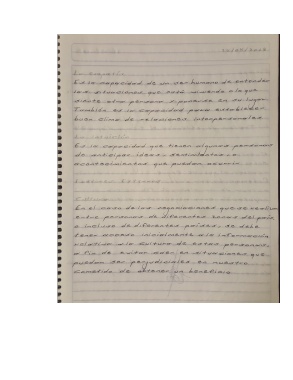 Es la capacidad de un ser humano de entender
las situaciones que está viviendo o lo que
siente otra persona y ponerse en su lugar.
También es su capacidad para establecer
buen clima de relaciones interpersonales
Es la capacidad que tienen algunas personas
de anticipar ideas,
acontecimientos que puedan ocurrir
En el caso de las negociaciones que se realizan
entre personas de diferentes zonas del país
e incluso de diferentes países, se debe
tener acceso inicialmente a la información
relativa a la cultura de estas personas,
a fin de evitar caer en situaciones que
puedan ser perjudiciales en nuestro
cometido de obtener un beneficio